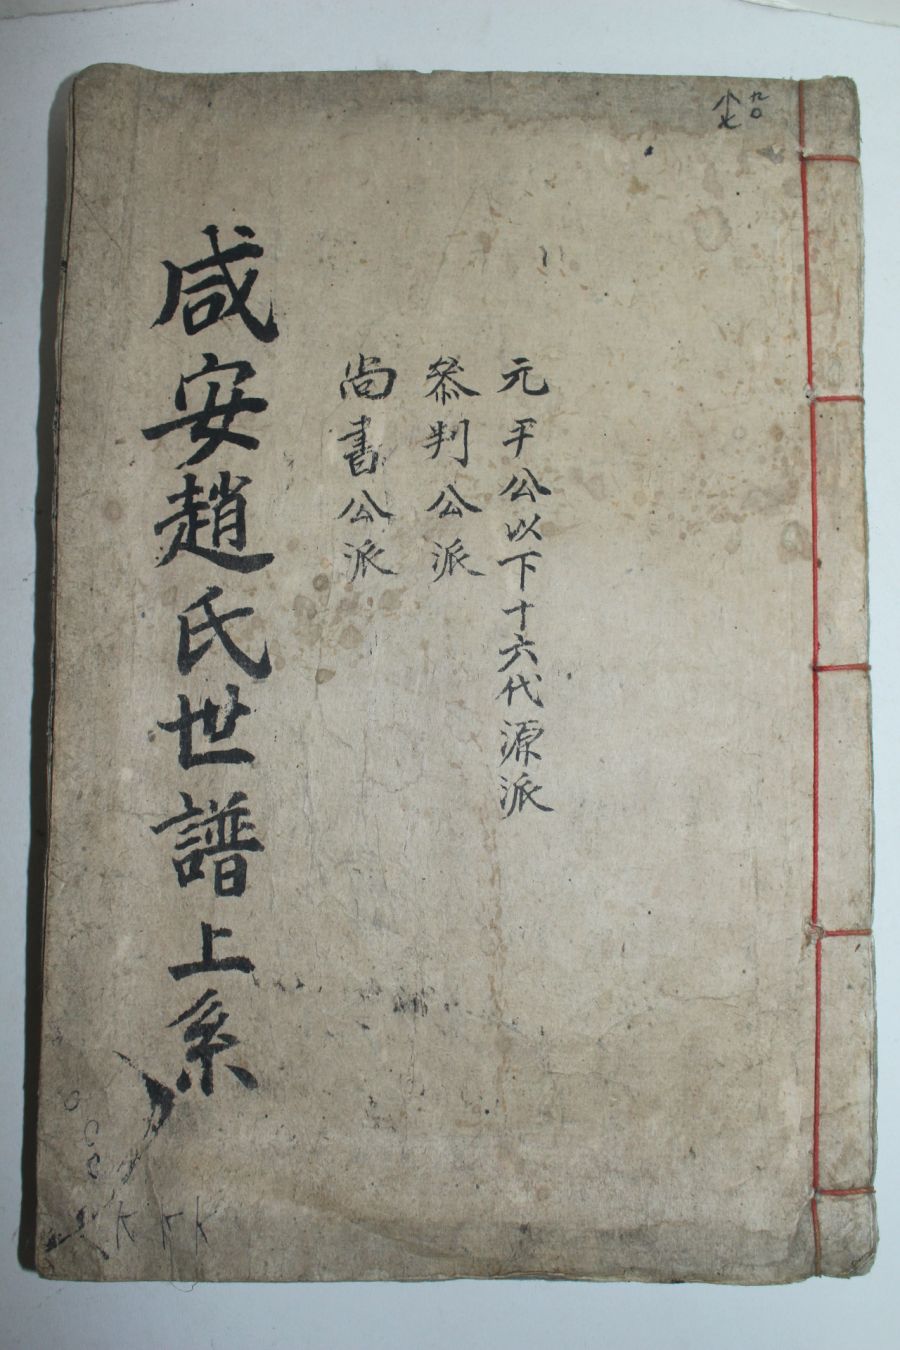 元平公以下十六代源派
叅判公派
尚書公派
咸安趙氏世譜上系